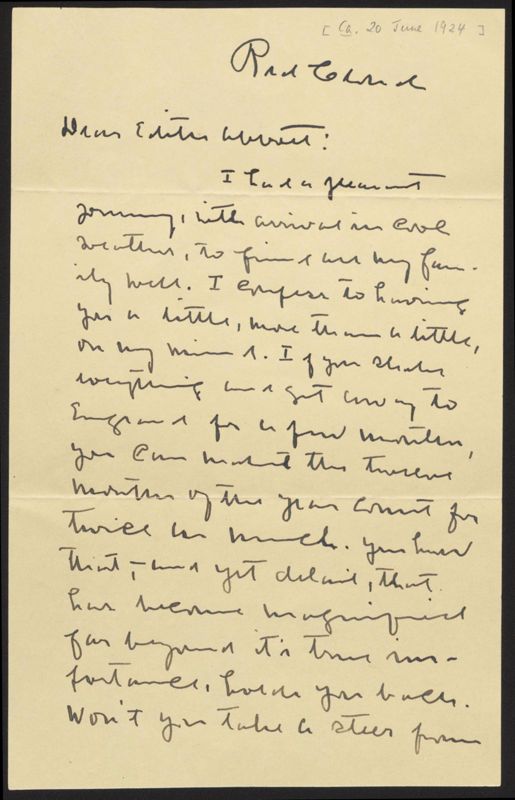 [Ca. 20 June 1924]
Red Cloud
Dear Edith Abbott:
I had a pleasant
journey, with arrival in cool
weather, to find all my fam-
ily well. I confess to having
you a little, more than a little,
on my mind. If you shake
everything and get away to
England for a few months,
you can make the twelve
months of the year count for
twice as much. You know
that,- and yet detail, that
has become magnified
far beyond it's true im-
portance, holds you back.
Won't you take a steer from